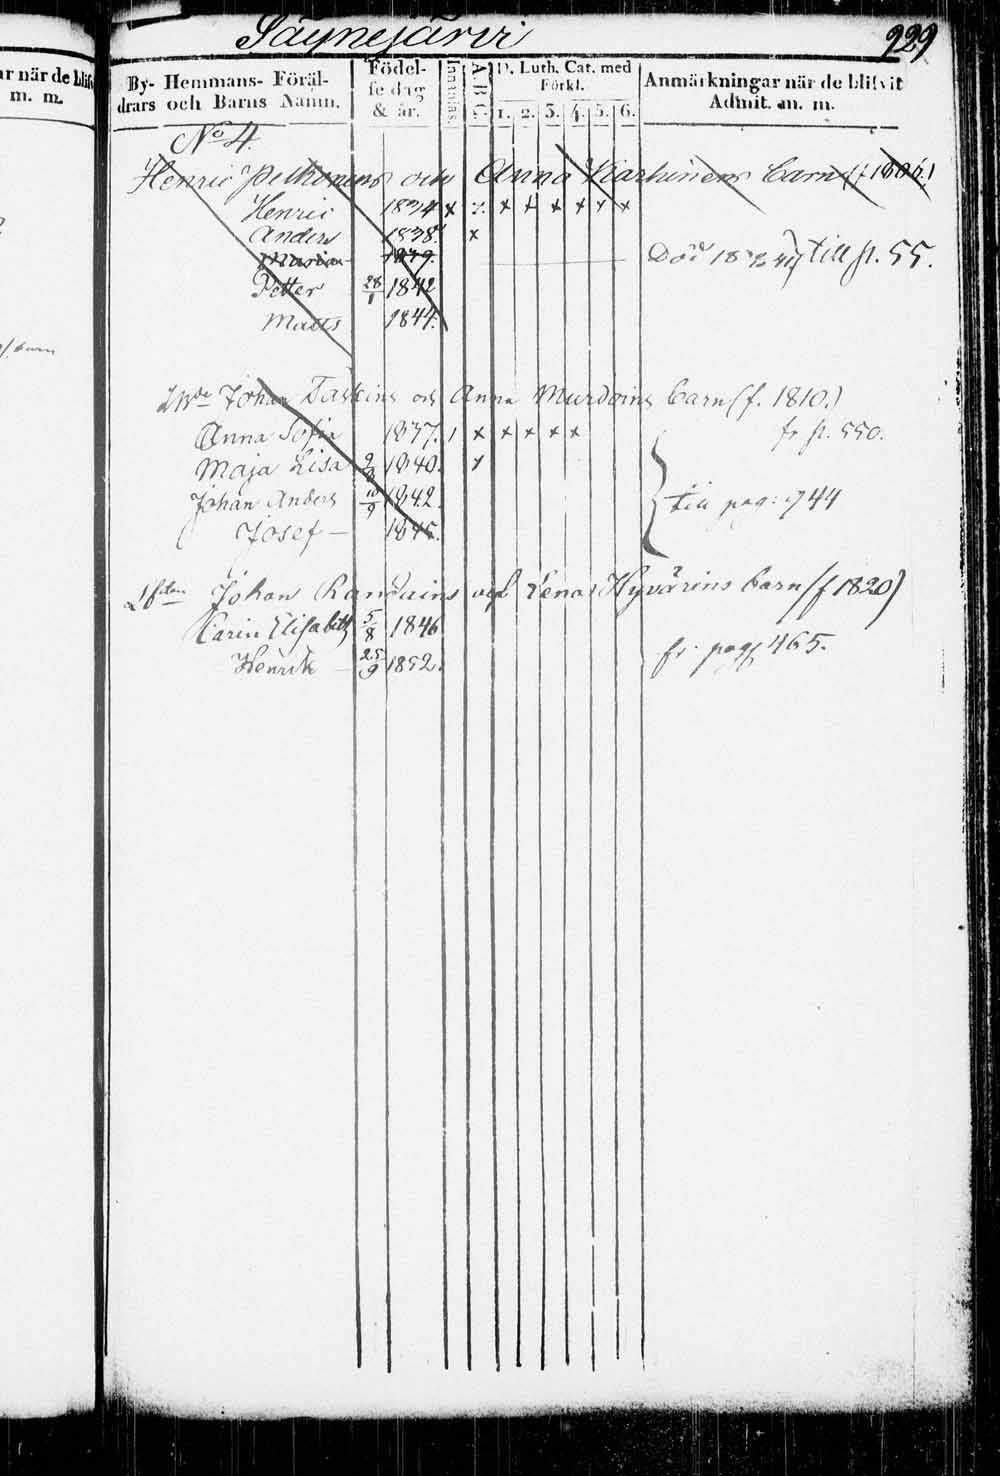 Säynejärvi 229
ar när de blifvit
m. m.
By- Hemmans- Föräl-
drars och Barns Namn.
Födel-
se dag
& år.
Innanläs.
A B C.
D. Luth. Cat. med
Förkl.
1. 2. 3. 4. 5. 6.
Anmärkningar när de blifvit
Admit. m. m.
No 4.
Henric Pelkonens och Anna Karhunens barn (f 1806.)
Henric 1834 x x x x x x x x
Anders 1838. x
Maria 1839. Död till p. 55.
Petter 28/1 1842
Matts 1844.
Johan Taskins och Anna Murdoins barn (f. 1810.)
Anna Sofia 1837. x x x x x fr p. 550.
Maja Lisa 1840. x
Johan Anders 10/9 1842. till pag: 744
Josef — 1845.
Johan Randains och Lena Hyvärins barn (f 1820)
Carin Elisabeth 5/8 1846
Henrik 25/9 1852. fr. pag 465.